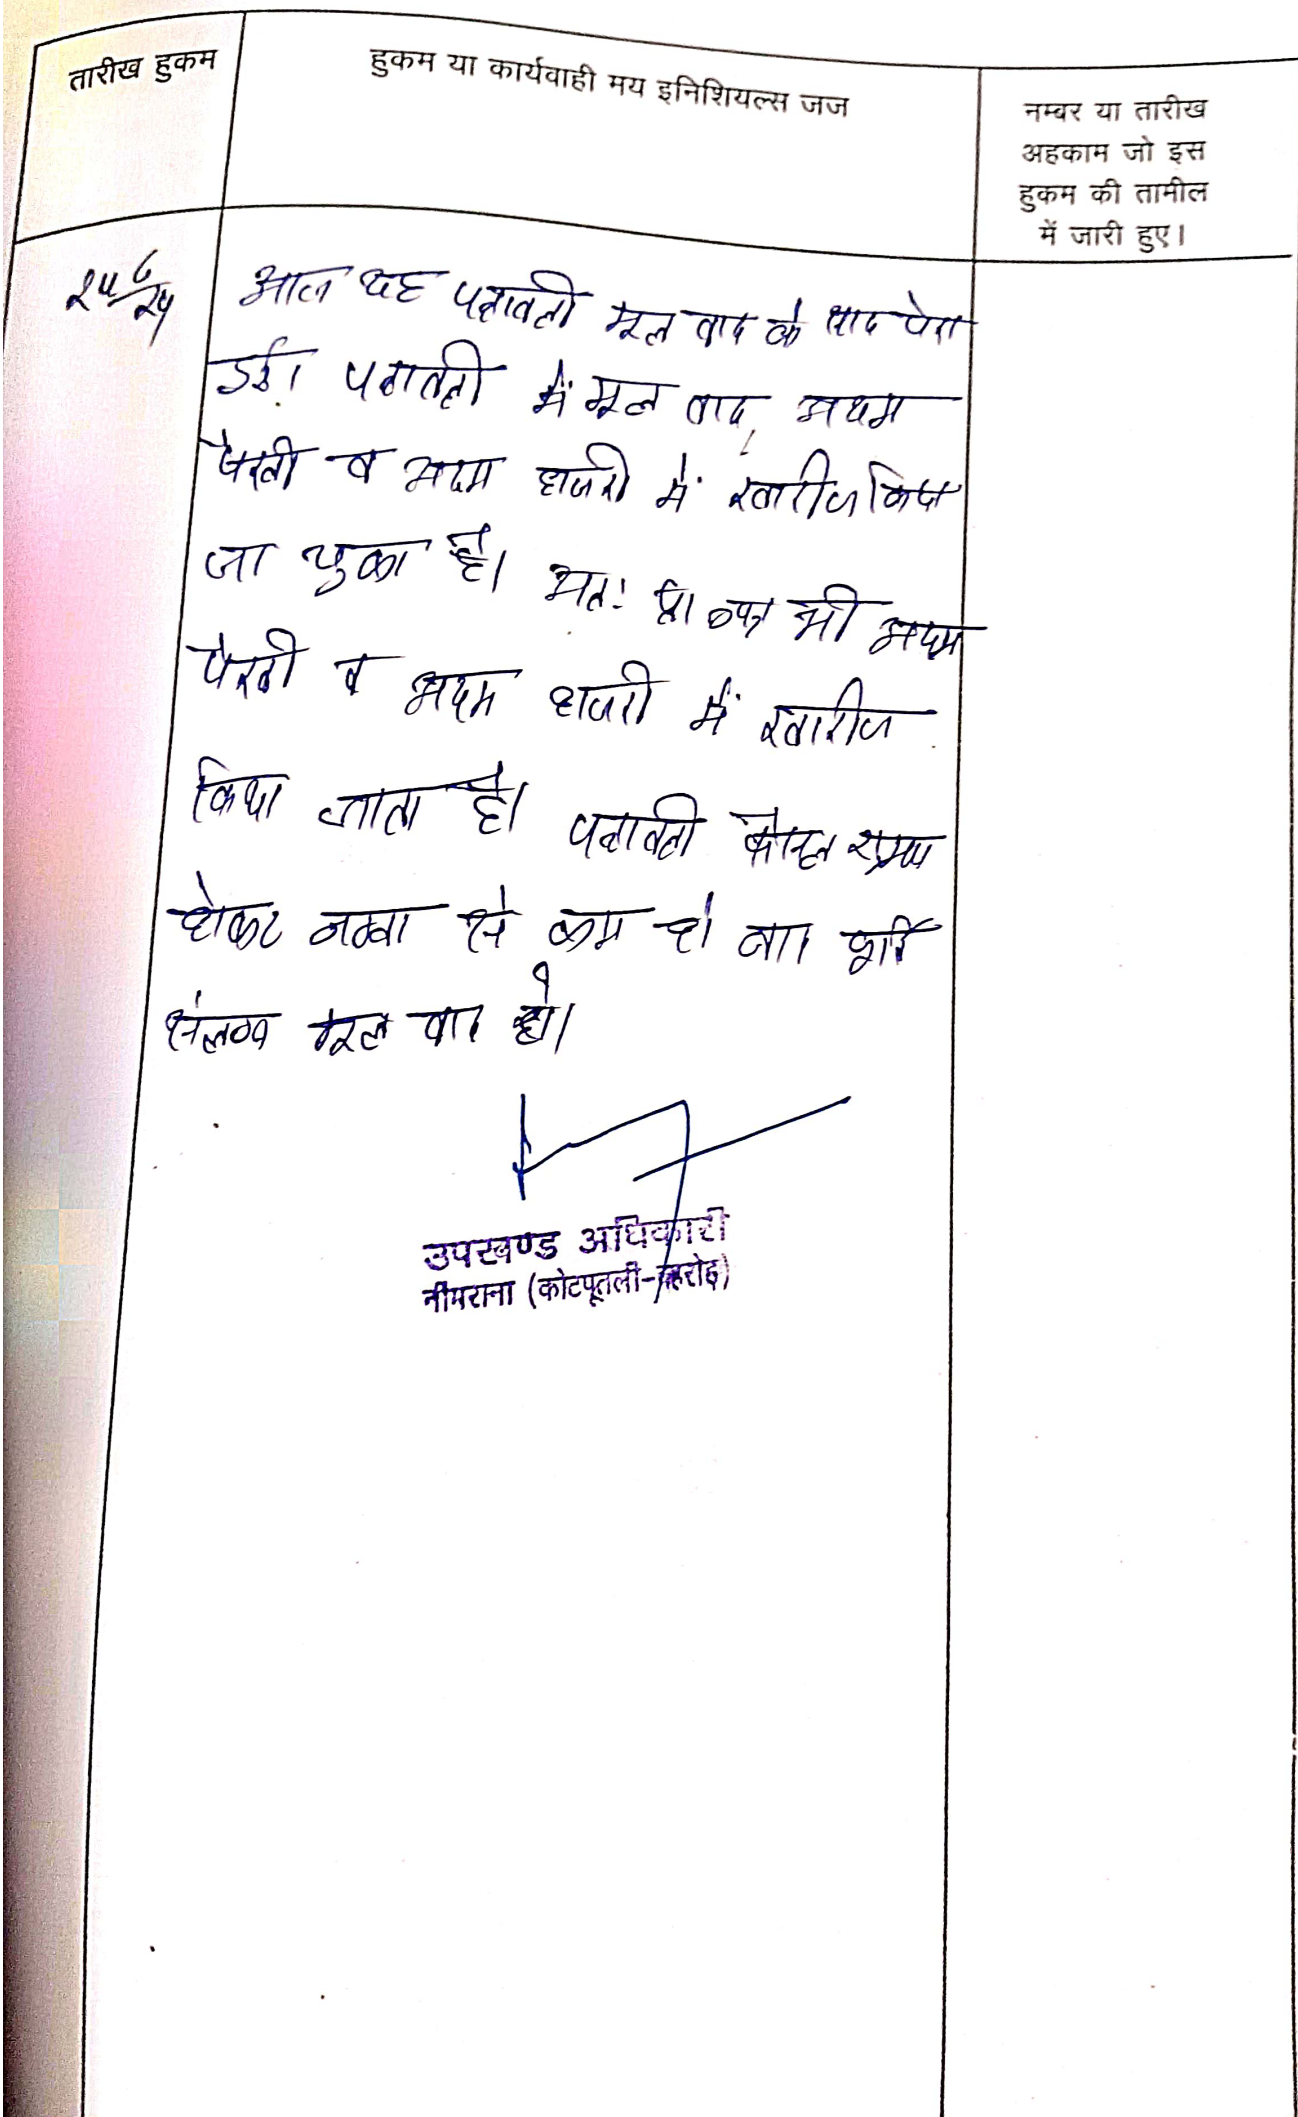 तारीख हुकम
हुकम या कार्यवाही मय इनिशियल्स जज
नम्बर या तारीख
अहकाम जो इस
हुकम की तामील
में जारी हुए।
आज यह पत्रावली मूल वाद के साथ पेश
हुई। पत्रावली में मूल वाद, अदम
पैरवी व अदम हाजरी में खारीज किया
जा चुका है। अतः प्रा० पत्र भी अदम
पैरवी व अदम हाजरी में खारीज
किया जाता है। पत्रावली फैसल शुमार
होकर नम्बर से कम हो बाद पूर्ति
संलग्न मूल वाद हो।
उपखण्ड अधिकारी
नीमराना (कोटपूतली-बहरोड़)